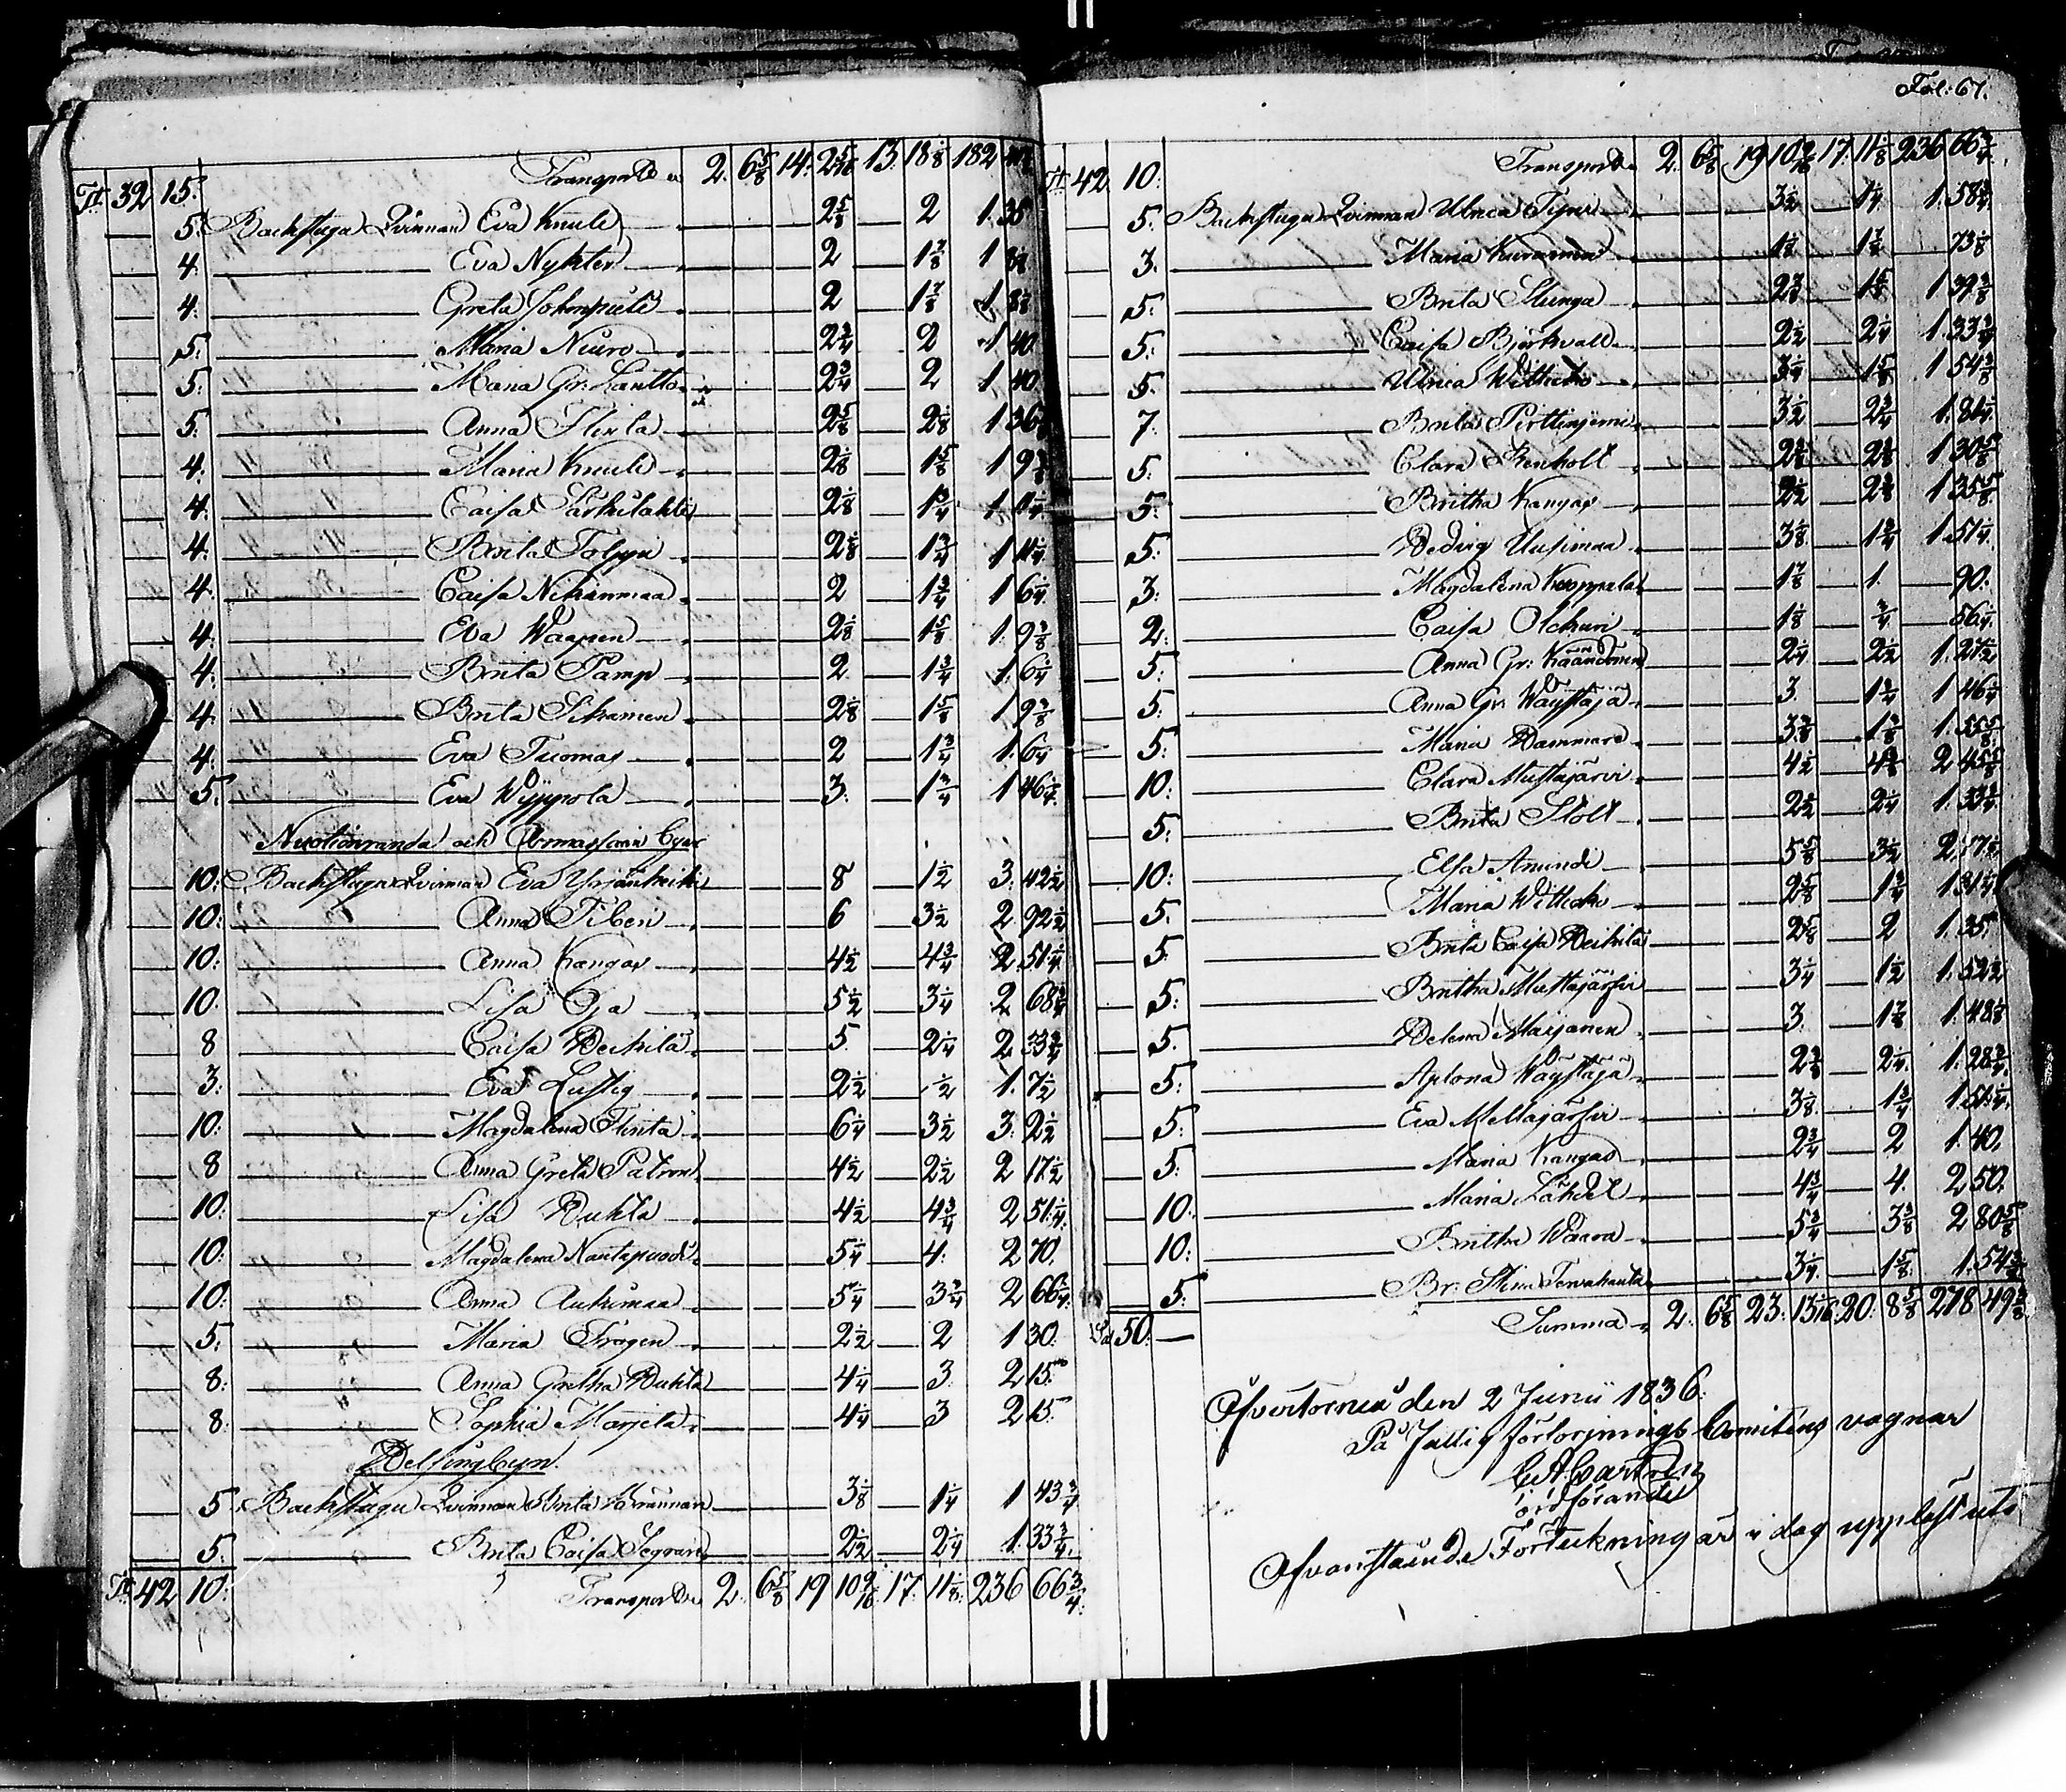 Transport 2. 6 5/8 14. 2 5/16 13. 18 1/8 182
Tr 32 15.
5. Backstugu Qvinnan Eva Knuuti 2 5/8 2 1. 35
4. Eva Nykter 2 1 7/8 1 8 1/8
4. Greta 2 1 7/8 1 8 1/8
5. Maria Niuro 2 3/4 2 1 40
5. Maria Gr. Lantto 2 3/4 2 1 40
5. Anna 2 5/8 2 1/8 1 36
4. Maria Knuuti 2 1/8 1 5/8 1 9 3/8
4. Caisa Särkilahti 2 1/8 1 3/4 1
4. Brita Tolppi 2 1/8 1 3/4 1 11 1/4
4. Caisa Nikanmaa 2 1 3/4 1 6 1/4
4. Eva Waapen 2 1/8 1 5/8 1. 9 3/8
4. Brita Pamp 2 1 3/4 1. 6 1/4
4. Brita Sihainen 2 1/8 1 5/8 1 9 3/8
4. Eva Tuomas 2 1 3/4 1. 6 1/4
5. Eva Wyppola 3. 1 3/4 1 46 1/4
Nuotioranda och Armassari Byar
10. Backstugu Qvinnan Eva Yrjänheikki 8 1 1/2 3. 42 1/2
10. Anna Siben 6 3 1/2 2 92 1/2
10. Anna Kangas 4 1/2 4 3/4 2 51 1/4
10. Lisa Oja 5 1/2 3 1/4 2 68 3/4
8 Caisa Heikilä 5. 2 1/4 2 33 3/4
3. Eva Lustig 2 1/2 1/2 1. 7 1/2
10. Magdalena Flinta 6 1/4 3 1/2 3. 2 1/2
8 Anna Greta Patron 4 1/2 2 1/2 2 17 1/2
10. Lisa Huhta 4 1/2 4 3/4 2 51 1/4
10. Magdalena Nautapuodi 5 1/4 4. 2 70.
10. Anna Aukimaa 5 1/4 3 3/4 2 66 1/4
5. Maria Frogen 2 1/2 2 1 30.
8. Anna Gretha Huhta 4 1/4 3. 2 15.
8. Sophia Marjeta 4 1/4 3 2 15.
Helsingbyn.
5 Backstugu Qvinnan Brita 3 1/8 1 1/4 1 43 3/4
5. Brita Caisa Segvare 2 1/2 2 1/4 1. 33 3/4
Tr 42 10. Transport 2. 6 5/8 19 10 9/16 17. 11 1/8 236 66 3/4
Fol: 67.
Tr 42 10. Transport 2. 6 5/8 19 10 9/16 17. 11 1/8 236 66 3/4
5. Backstugu Qvinnan Ulrica Tyni 3 1/2 1 1/4 1. 58 3/4
3. Maria 1 1/8 73 1/8
5. Brita Slunga 2 7/8 1 5/8 1 39 3/8
5. Caisa Björkvall 2 1/2 2 1/4 1. 33 3/4
5. Ulrica Wittikko 3 1/4 1 5/8 1 54 3/8
7. Brita Pirttiniemi 3 1/2 2 3/4 1. 81 1/4
5. Clara Stenholt 2 3/8 1 30 5/8
5. Britha Kangas 2 1/2 2 3/8 1 35 5/8
5. Hedvig Uusimaa 3 1/8 1 3/4 1 51 1/4
3. Magdalena Koppala 1 7/8 1. 90.
2. Caisa Olchuri 1 1/8 3/4 56 1/4
5. Anna Gr: Käändönen 2 1/4 2 1/2 1. 27 1/2
5. Anna Gr. Wäystäjä 3 1 3/4 1 46 1/4
5. Maria Hammare 3 3/8 1 3/8 1. 55 5/8
10. Clara Mustajärvi 4 1/2 4 3/8 2 45 5/8
5. Brita Stolt 2 1/2 2 1/4 1. 33 3/4
10. Elsa Amindi 5 5/8 3 1/2 2. 77 1/2
5. Maria Wittikko 2 5/8 1 3/4 1 31 1/4
5. Brita Caisa Heikila 2 5/8 2 1. 35
5. Britha Mustajärfvi 3 1/4 1 1/2 1. 52 1/2
5. Helena Maijanen 3. 1 7/8 1. 48 1/8
5. Aplona Wäystäjä 2 3/8 2 1/4 1. 28 3/4
5. Eva Meltajärfvi 3 1/8 1 3/4 1 51 1/4
5. Maria Kangas 2 3/4 2 1. 40.
10. Maria Lähdet 4 3/4 4. 2 50.
10. Britha Waara 5 3/4 3 3/8 2 80 5/8
5. Br: Stina Tervahauta 3 1/4 1 5/8 1. 54 3/8
50. Summa 2. 6 5/8 23. 13 1/16 20. 8 5/8 278 49 3/8
Öfvertorneå den 2 Junii 1836.
På Fattig försörjnings Comitens vägnar
ordförande
Ofvanstående Förtekning är i dag uppläst uti